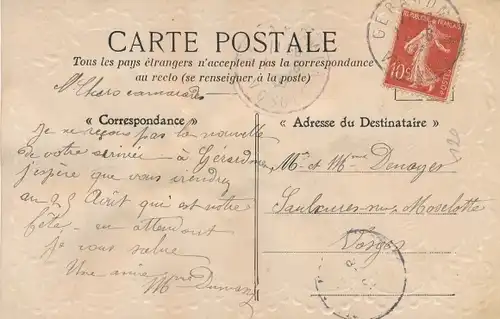 CARTE POSTALE
Tous les pays étrangers n'acceptent pas la correspondance
au recto (se renseigner à la poste)
Chers camarades
« Correspondance »
« Adresse du Destinataire »
Je ne reçois pas la nouvelle
de votre arrivée à Gérardmer
j'espère que vous viendrez
au 25 Août qui est notre
fête en attendant
je vous salue
Une amie
Mr et Mme
Saulxures-sur-Moselotte
Vosges
REPUBLIQUE FRANÇAISE
10c
POSTES